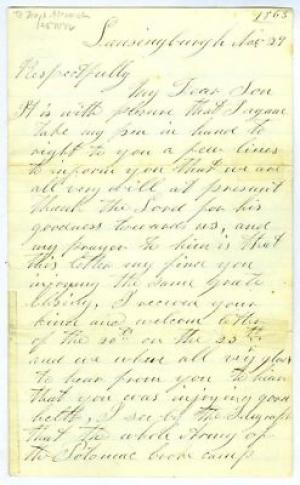 1863
Lansingburgh Nov 29
Respectfully
My Dear Son
It is with plesure that I gane
take my pen in hand to
right to you a few lines
to inform you that we are
all very well at presint
thank the Lord for his
goodness towards us, and
my prayer to him is that
this letter my find you
injoying the same grate
blesing, I received your
kind and welcom letter
of the 20th on the 25th
and we when all very glad
to hear from you to hear
that you was injoying good
helth, I see by the Telegraph
that the whole Army of
the Potomac broke camp